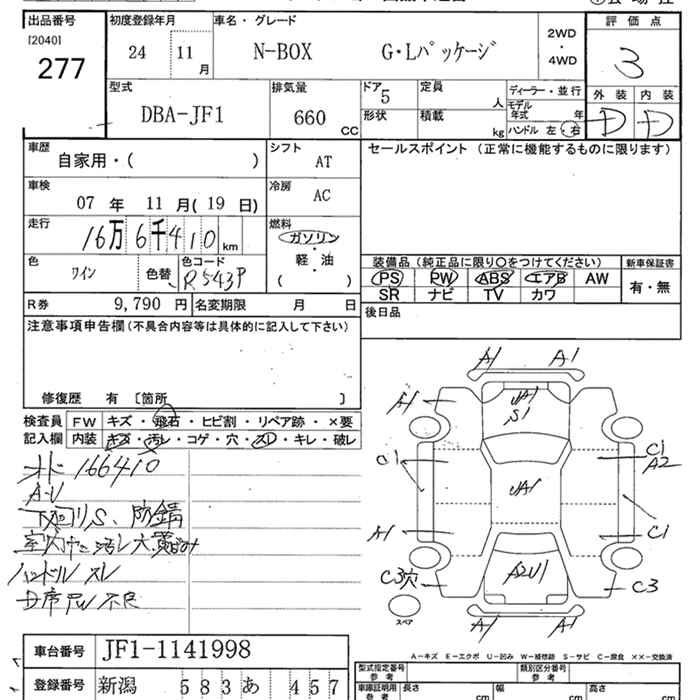 出品番号 初度登録年月 車名・グレード 2WD・4WD 評価点
[2040]
277 24 11月 N-BOX G・Lパッケージ 3
型式 排気量 ドア 5 定員 人 ディーラー・並行 外装 内装
DBA-JF1 660 CC 形状 積載 kg モデル年式 年 D D
ハンドル 左・右
車歴 自家用・( ) シフト AT セールスポイント (正常に機能するものに限ります)
車検 07年 11月(19日) 冷房 AC
走行 16万6千410km 燃料 ガソリン・軽・油 ( )
色 ワイン 色替 色コード R543P
装備品(純正品に限り○をつけてください) 新車保証書
PS PW ABS エアB AW 有・無
SR ナビ TV カワ
R券 9,790円 名変期限 月 日 後日品
注意事項申告欄(不具合内容等は具体的に記入して下さい)
修復歴 有 [箇所 ]
検査員 FW キズ・飛石・ヒビ割・リペア跡・×要
記入欄 内装 キズ・汚レ・コゲ・穴・スレ・キレ・破レ
オド 166410
A-U
下回りS、防錆
ハンドル スレ
不良
A1 A1
A1 A1
S1
A1 C1
C1 A2
A1
A1 C1
C3穴 A2U1 C3
A1 A1
スペア
A-キズ E-エクボ U-凹み W-補修跡 S-サビ C-腐食 ××-交換済
車台番号 JF1-1141998
登録番号 新潟 583 あ 457
型式指定番号 参考 類別区分番号 参考
車庫証明用 参考 長さ cm 幅 cm 高さ cm